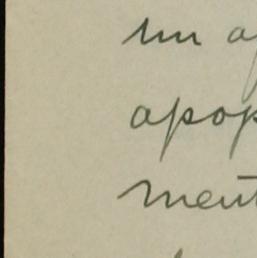 un ap
apop
ment